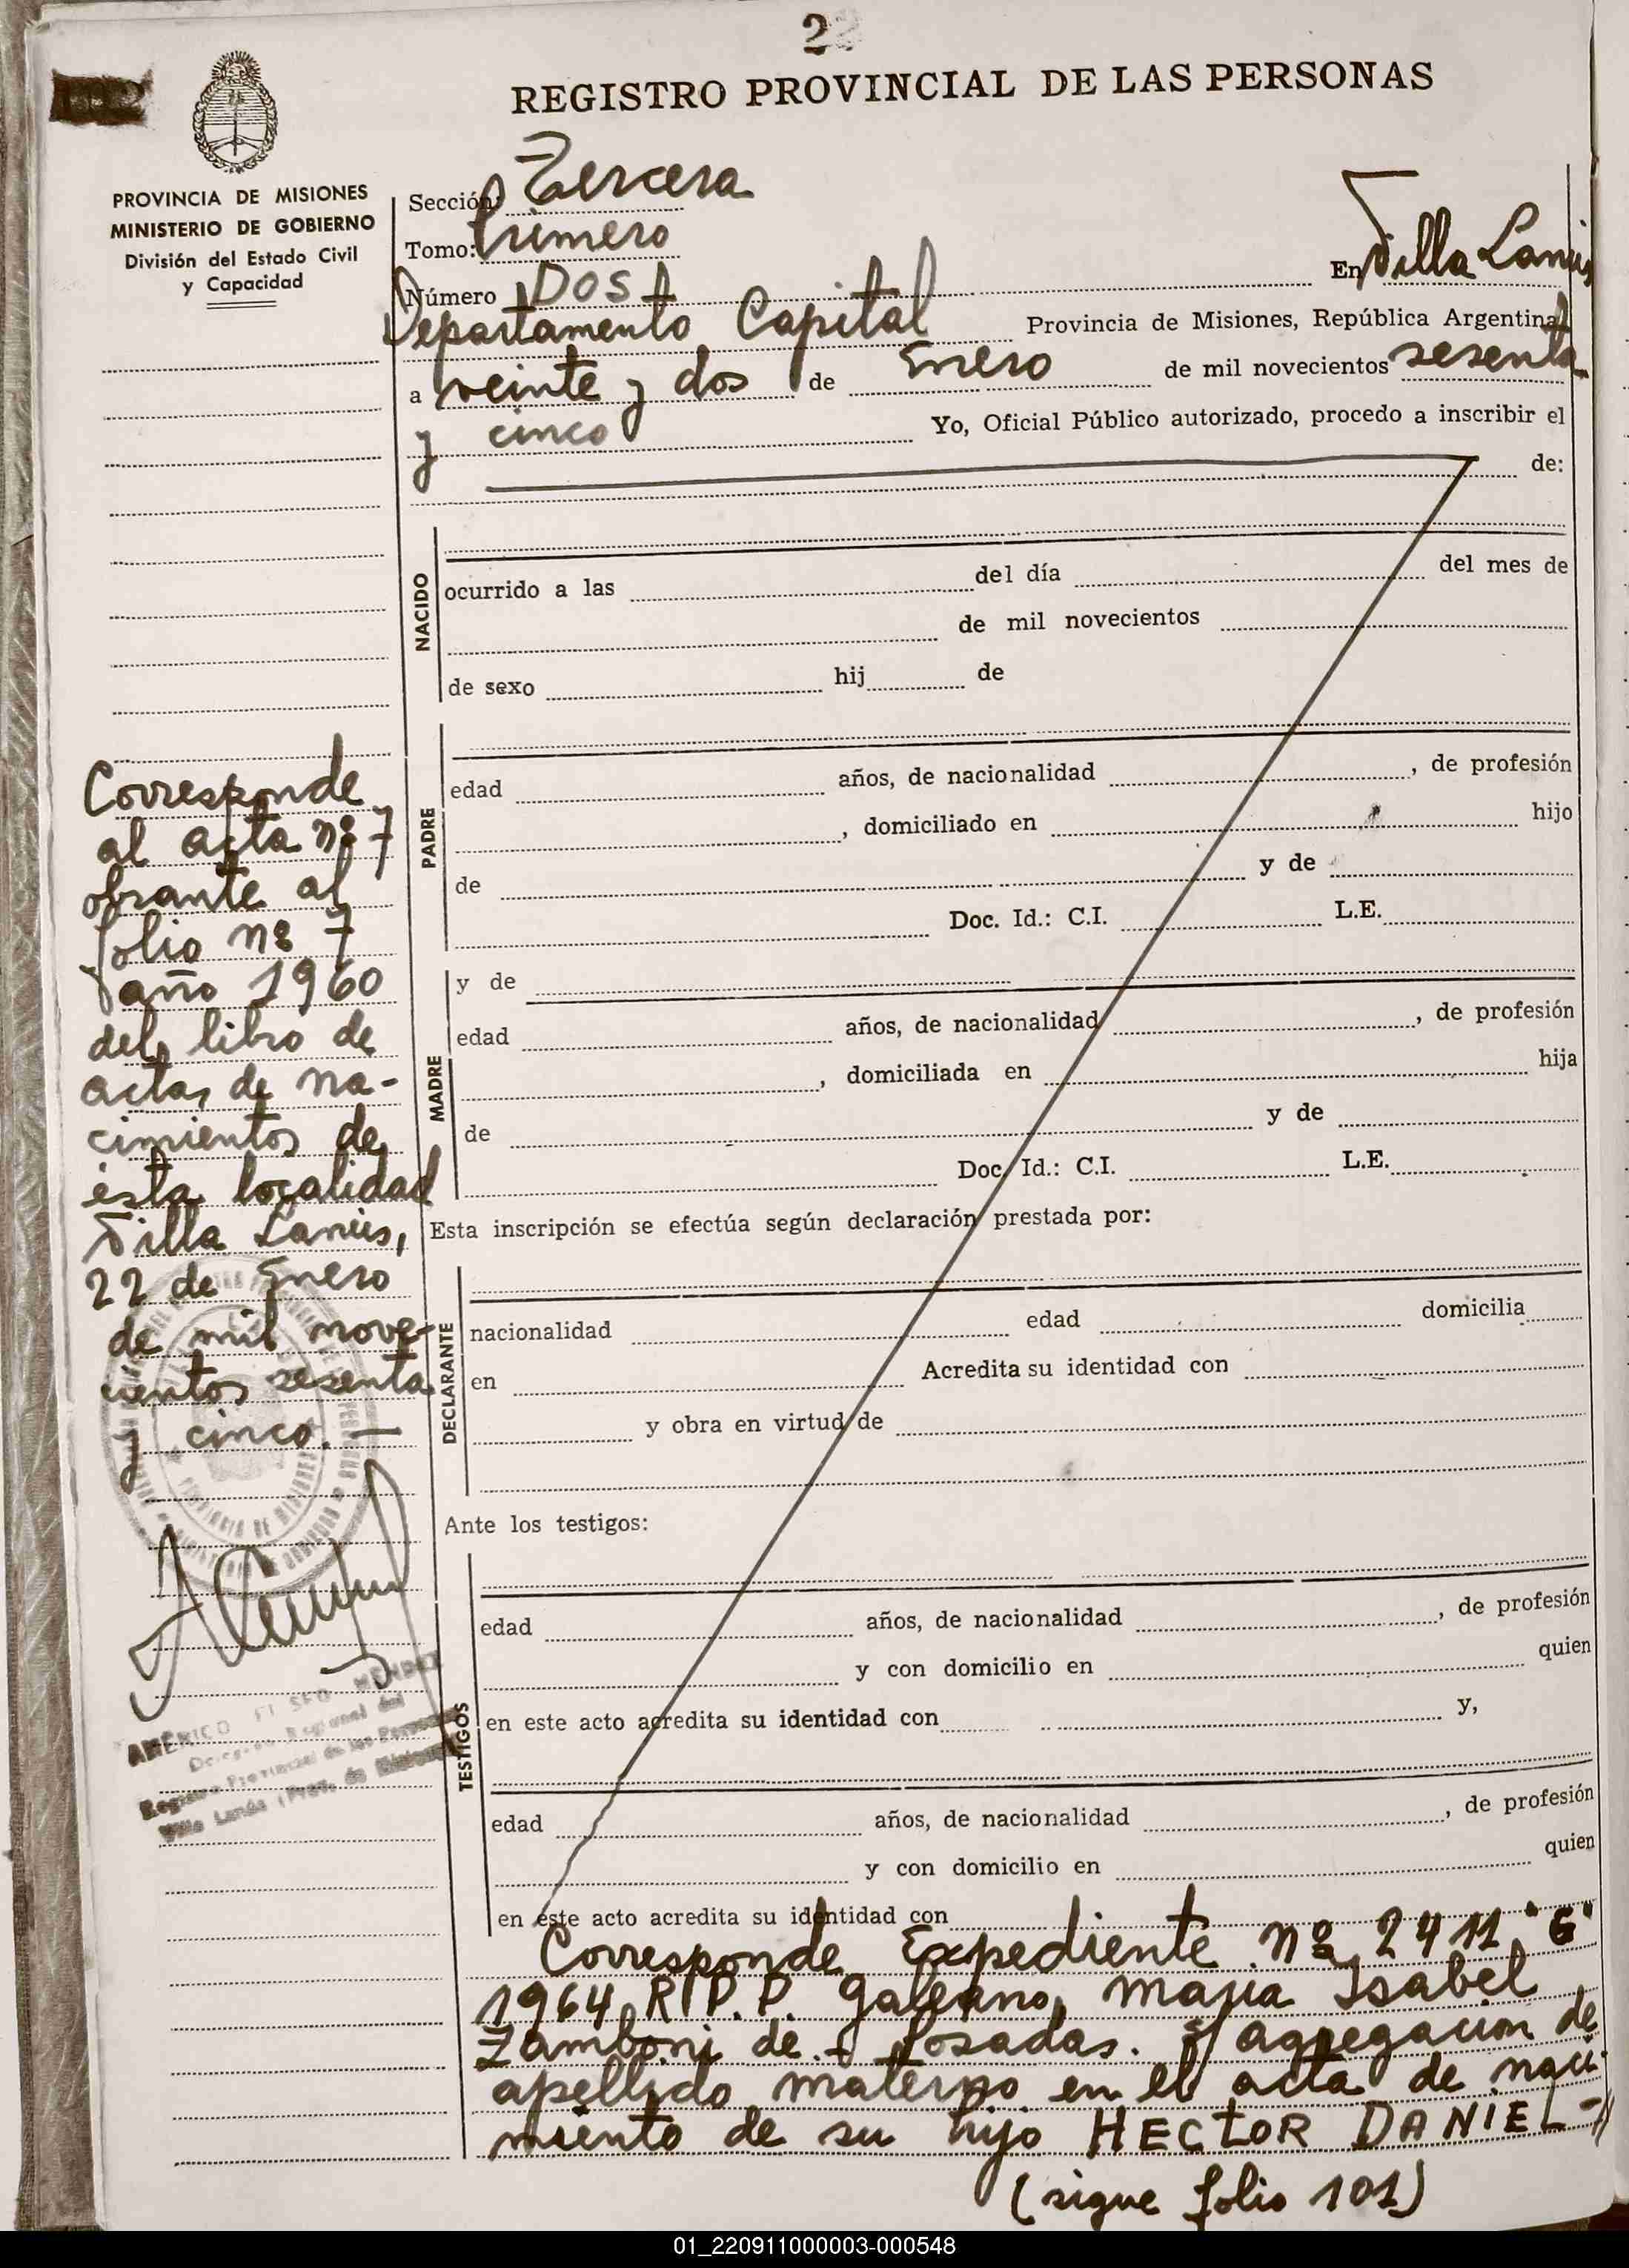 2
REGISTRO PROVINCIAL DE LAS PERSONAS
PROVINCIA DE MISIONES
MINISTERIO DE GOBIERNO
División del Estado Civil
y Capacidad
Sección: Tercera
Tomo: Primero
Número DOS En Villa Lanús
Departamento Capital Provincia de Misiones, República Argentina
a veinte y dos de Enero de mil novecientos sesenta
y cinco Yo, Oficial Público autorizado, procedo a inscribir el
de:
NACIDO
ocurrido a las del día del mes de
de mil novecientos
de sexo hij de
PADRE
edad años, de nacionalidad , de profesión
, domiciliado en hijo
de y de
Doc. Id.: C.I. L.E.
MADRE
y de
edad años, de nacionalidad , de profesión
, domiciliada en hija
de y de
Doc. Id.: C.I. L.E.
Esta inscripción se efectúa según declaración prestada por:
DECLARANTE
nacionalidad edad domicilia
en Acredita su identidad con
y obra en virtud de
Ante los testigos:
TESTIGOS
edad años, de nacionalidad , de profesión
y con domicilio en quien
en este acto acredita su identidad con y,
edad años, de nacionalidad , de profesión
y con domicilio en quien
en este acto acredita su identidad con
Corresponde Expediente nº 2411 "G"
1964 R.P.P. Galeano, Maria Isabel
Zamboni de - Posadas. s/ agregación de
apellido materno en el acta de naci-
miento de su hijo HECTOR DANIEL-//
(sigue folio 101)
Corresponde
al acta nº 7
obrante al
folio nº 7
año 1960
del libro de
actas de na-
cimientos de
esta localidad
Villa Lanús,
22 de Enero
de mil nove-
cientos sesenta
y cinco. —
AMERICO ELISEO MENDEZ
Delegado Regional del
Registro Provincial de las Personas
Villa Lanús (Prov. de Misiones)
01_220911000003-000548